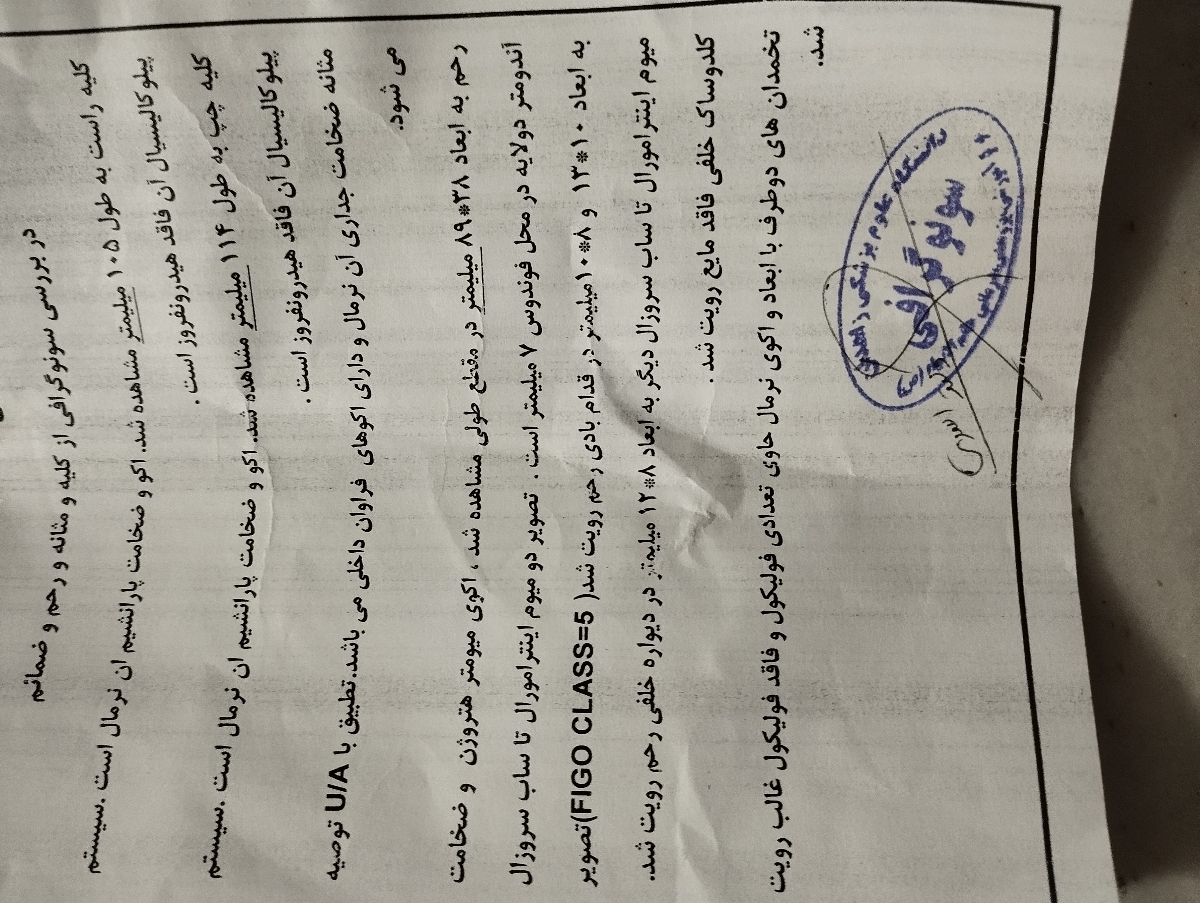 در بررسی سونوگرافی از کلیه و مثانه و رحم و ضمائم
کلیه راست به طول ۱۰۵ میلیمتر مشاهده شد. اکو و ضخامت پارانشیم ان نرمال است .سیستم
پیلوکالیسیال آن فاقد هیدرونفروز است .
کلیه چپ به طول ۱۱۴ میلیمتر مشاهده شد. اکو و ضخامت پارانشیم ان نرمال است .سیستم
پیلوکالیسیال آن فاقد هیدرونفروز است .
مثانه ضخامت جداری آن نرمال و دارای اکوهای فراوان داخلی می باشد.تطبیق با U/A توصیه
می شود.
رحم به ابعاد ۳۸*۸۹ میلیمتر در مقطع طولی مشاهده شد ، اکوی میومتر هتروژن و ضخامت
آندومتر دولایه در محل فوندوس ۷ میلیمتر است . تصویر دو میوم اینترامورال تا ساب سروزال
به ابعاد ۱۰*۱۳ و ۸*۱۰ میلیمتر در قدام بادی رحم رویت شد.( FIGO CLASS=5)تصویر
میوم اینترامورال تا ساب سروزال دیگر به ابعاد ۸*۱۲ میلیمتر در دیواره خلفی رحم رویت شد.
کلدوساک خلفی فاقد مایع رویت شد .
تخمدان های دوطرف با ابعاد و اکوی نرمال حاوی تعدادی فولیکول و فاقد فولیکول غالب رویت
شد.
دانشگاه علوم پزشکی
سونوگرافی